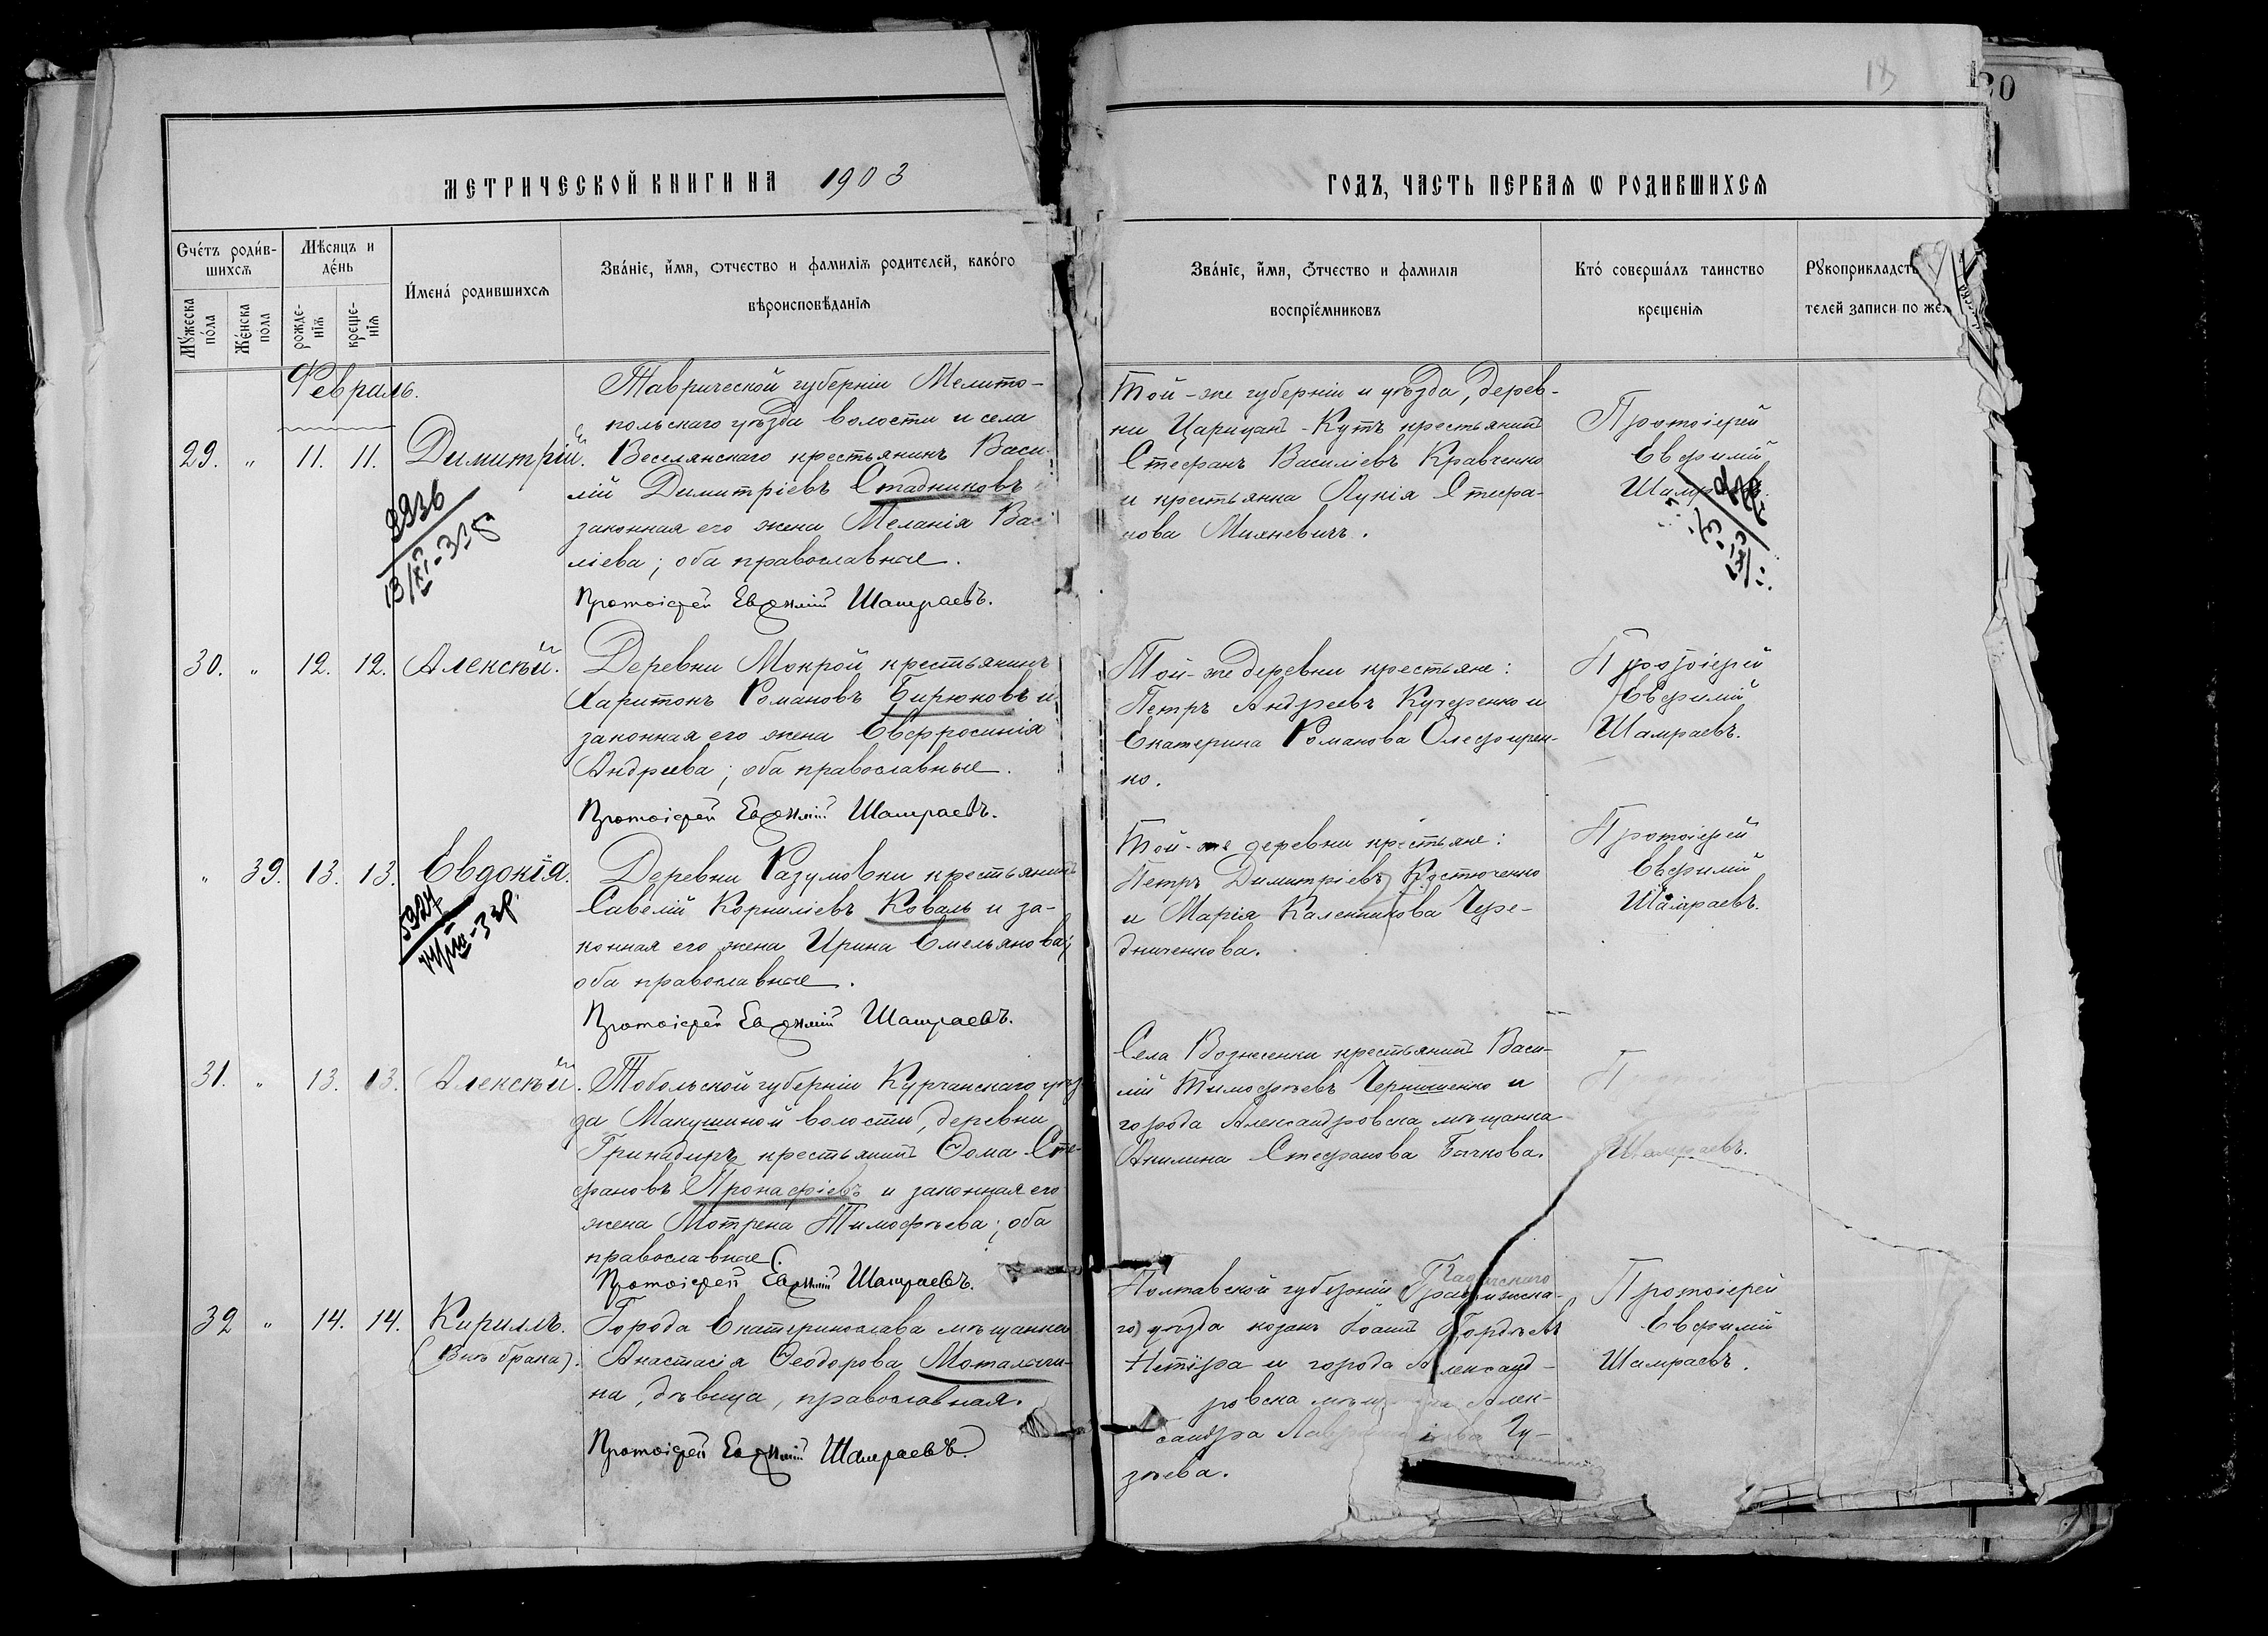 18
120
МЕТРИЧЕСКОЙ КНИГИ НА 1903
ГОДЪ, ЧАСТЬ ПЕРВАѦ Ѡ РОДИВШИХСѦ
Счéтъ роди́в-
шихсѧ
Мѣсяцъ и
дéнь
Мꙋжеска
пóла
Жéнска
пола
рожде-
нїѧ
креще-
нїѧ
И́мена́ родившихсѧ
Зва́нїе, и́мя, ѻтчество и фамилїѧ родителей, како́го
вѣроисповѣданїѧ
Зва́нїе, и́мя, ѻ́тчество и фамилїя
воспрїе́мниковъ
Кто́ соверша́лъ таинство
крещенїѧ
Рꙋкоприкладст
телей записи по жел
Февраль.
29. " 11. 11. Димитрій.
Таврической губерніи Мелито-
польскаго уѣзда волости и села
Веселянскаго крестьянинъ Васи-
лій Димитріевъ Стадниковъ
законная его жена Меланія Васи
ліева; оба православные.
Протоіерей Евѳимій Шамраевъ.
Той-же губерніи и уѣзда, дерев-
ни Царицинъ-Кутъ крестьянинъ
Стефанъ Василіевъ Кравченко
и крестьянка Лукія Стефа-
нова Михневичъ.
Протоіерей
Евфимій
Шамраевъ.
2936
13/XI-35
30. " 12. 12. Алексѣй.
Деревни Мокрой крестьянинъ
Харитонъ Романовъ Бирюковъ и
законная его жена Евфросинія
Андреева; оба православные.
Протоіерей Евѳимій Шамраевъ.
Той-же деревни крестьяне:
Петръ Андреевъ Кучеренко и
Екатерина Романова Олефирен-
ко.
Протоіерей
Евфимій
Шамраевъ.
" 39. 13. 13. Евдокія.
Деревни Разумовки крестьянинъ
Савелій Корниліевъ Коваль и за-
конная его жена Ирина Емельянова;
оба православные.
Протоіерей Евѳимій Шамраевъ.
Той-же деревни крестьяне:
Петръ Димитріевъ Костюченко
и Марія Каленникова Чере-
дниченкова.
Протоіерей
Евфимій
Шамраевъ.
5324
31. " 13. 13. Алексѣй.
Тобольской губерніи Курчанскаго уѣз
да Макушиной волости, деревни
Гринадиръ крестьянинъ Ѳома Сте-
фановъ Пронафіевъ и законная его
жена Мотрена Тимофѣева; оба
православные.
Протоіерей Евѳимій Шамраевъ.
Села Вознесенки крестьянинъ Васи-
лій Тимофѣевъ Чернышенко и
города Александровска мѣщанка
Акилина Стефанова Бачкова.
Шамраевъ.
32 " 14. 14. Кириллъ.
(Внѣ брака).
Города Екатеринослава мѣщанка
Анастасія Ѳеодорова Моталыги-
на, дѣвица, православная.
Протоіерей Евѳимій Шамраевъ.
Гадячскаго
Полтавской губерніи
го) уѣзда козакъ Іоаннъ Гордѣевъ
Нетуда и города Александ-
ровска Алек-
сандра Гу-
зѣева.
Протоіерей
Евфимій
Шамраевъ.